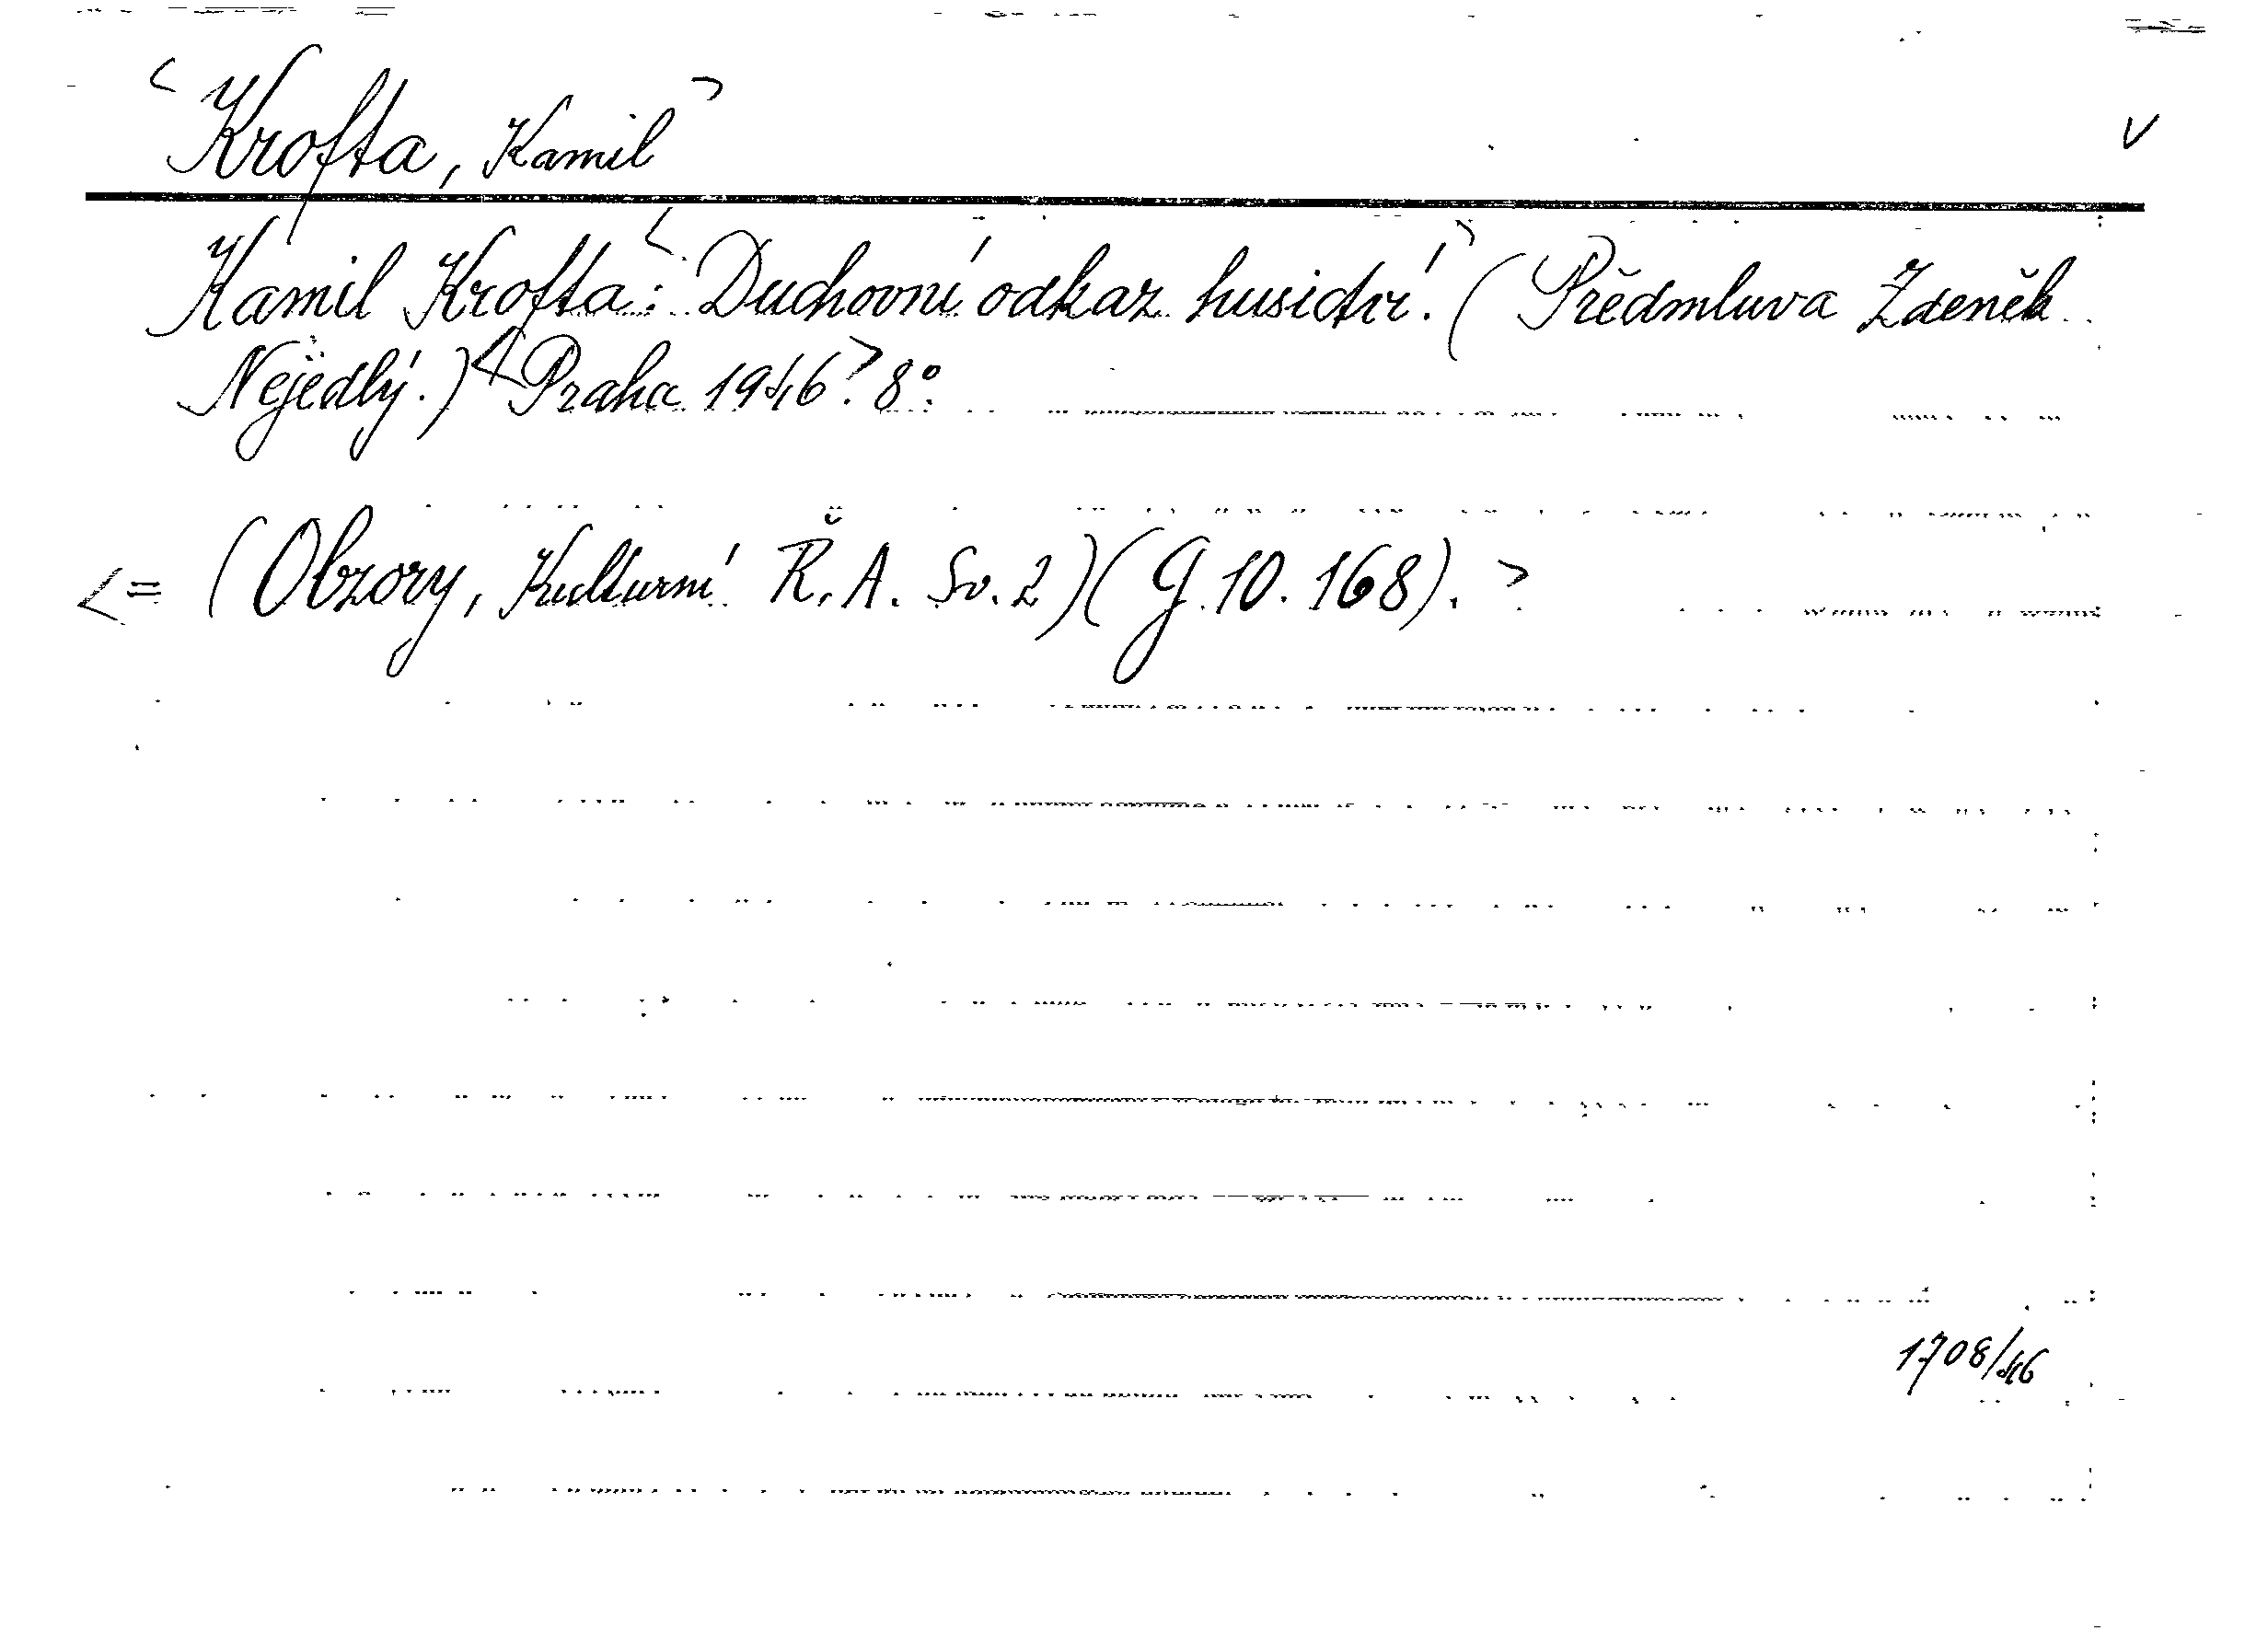 <Krofta, Kamil>
V
Kamil Krofta: <Duchovní odkaz husictví.> (Předmluva Zdeněk
Nejedlý.) <Praha 1946.> 8°.
<= (Obzory, Kulturní. Ř. A. Sv. 2) (G. 10. 168). >
1708/46